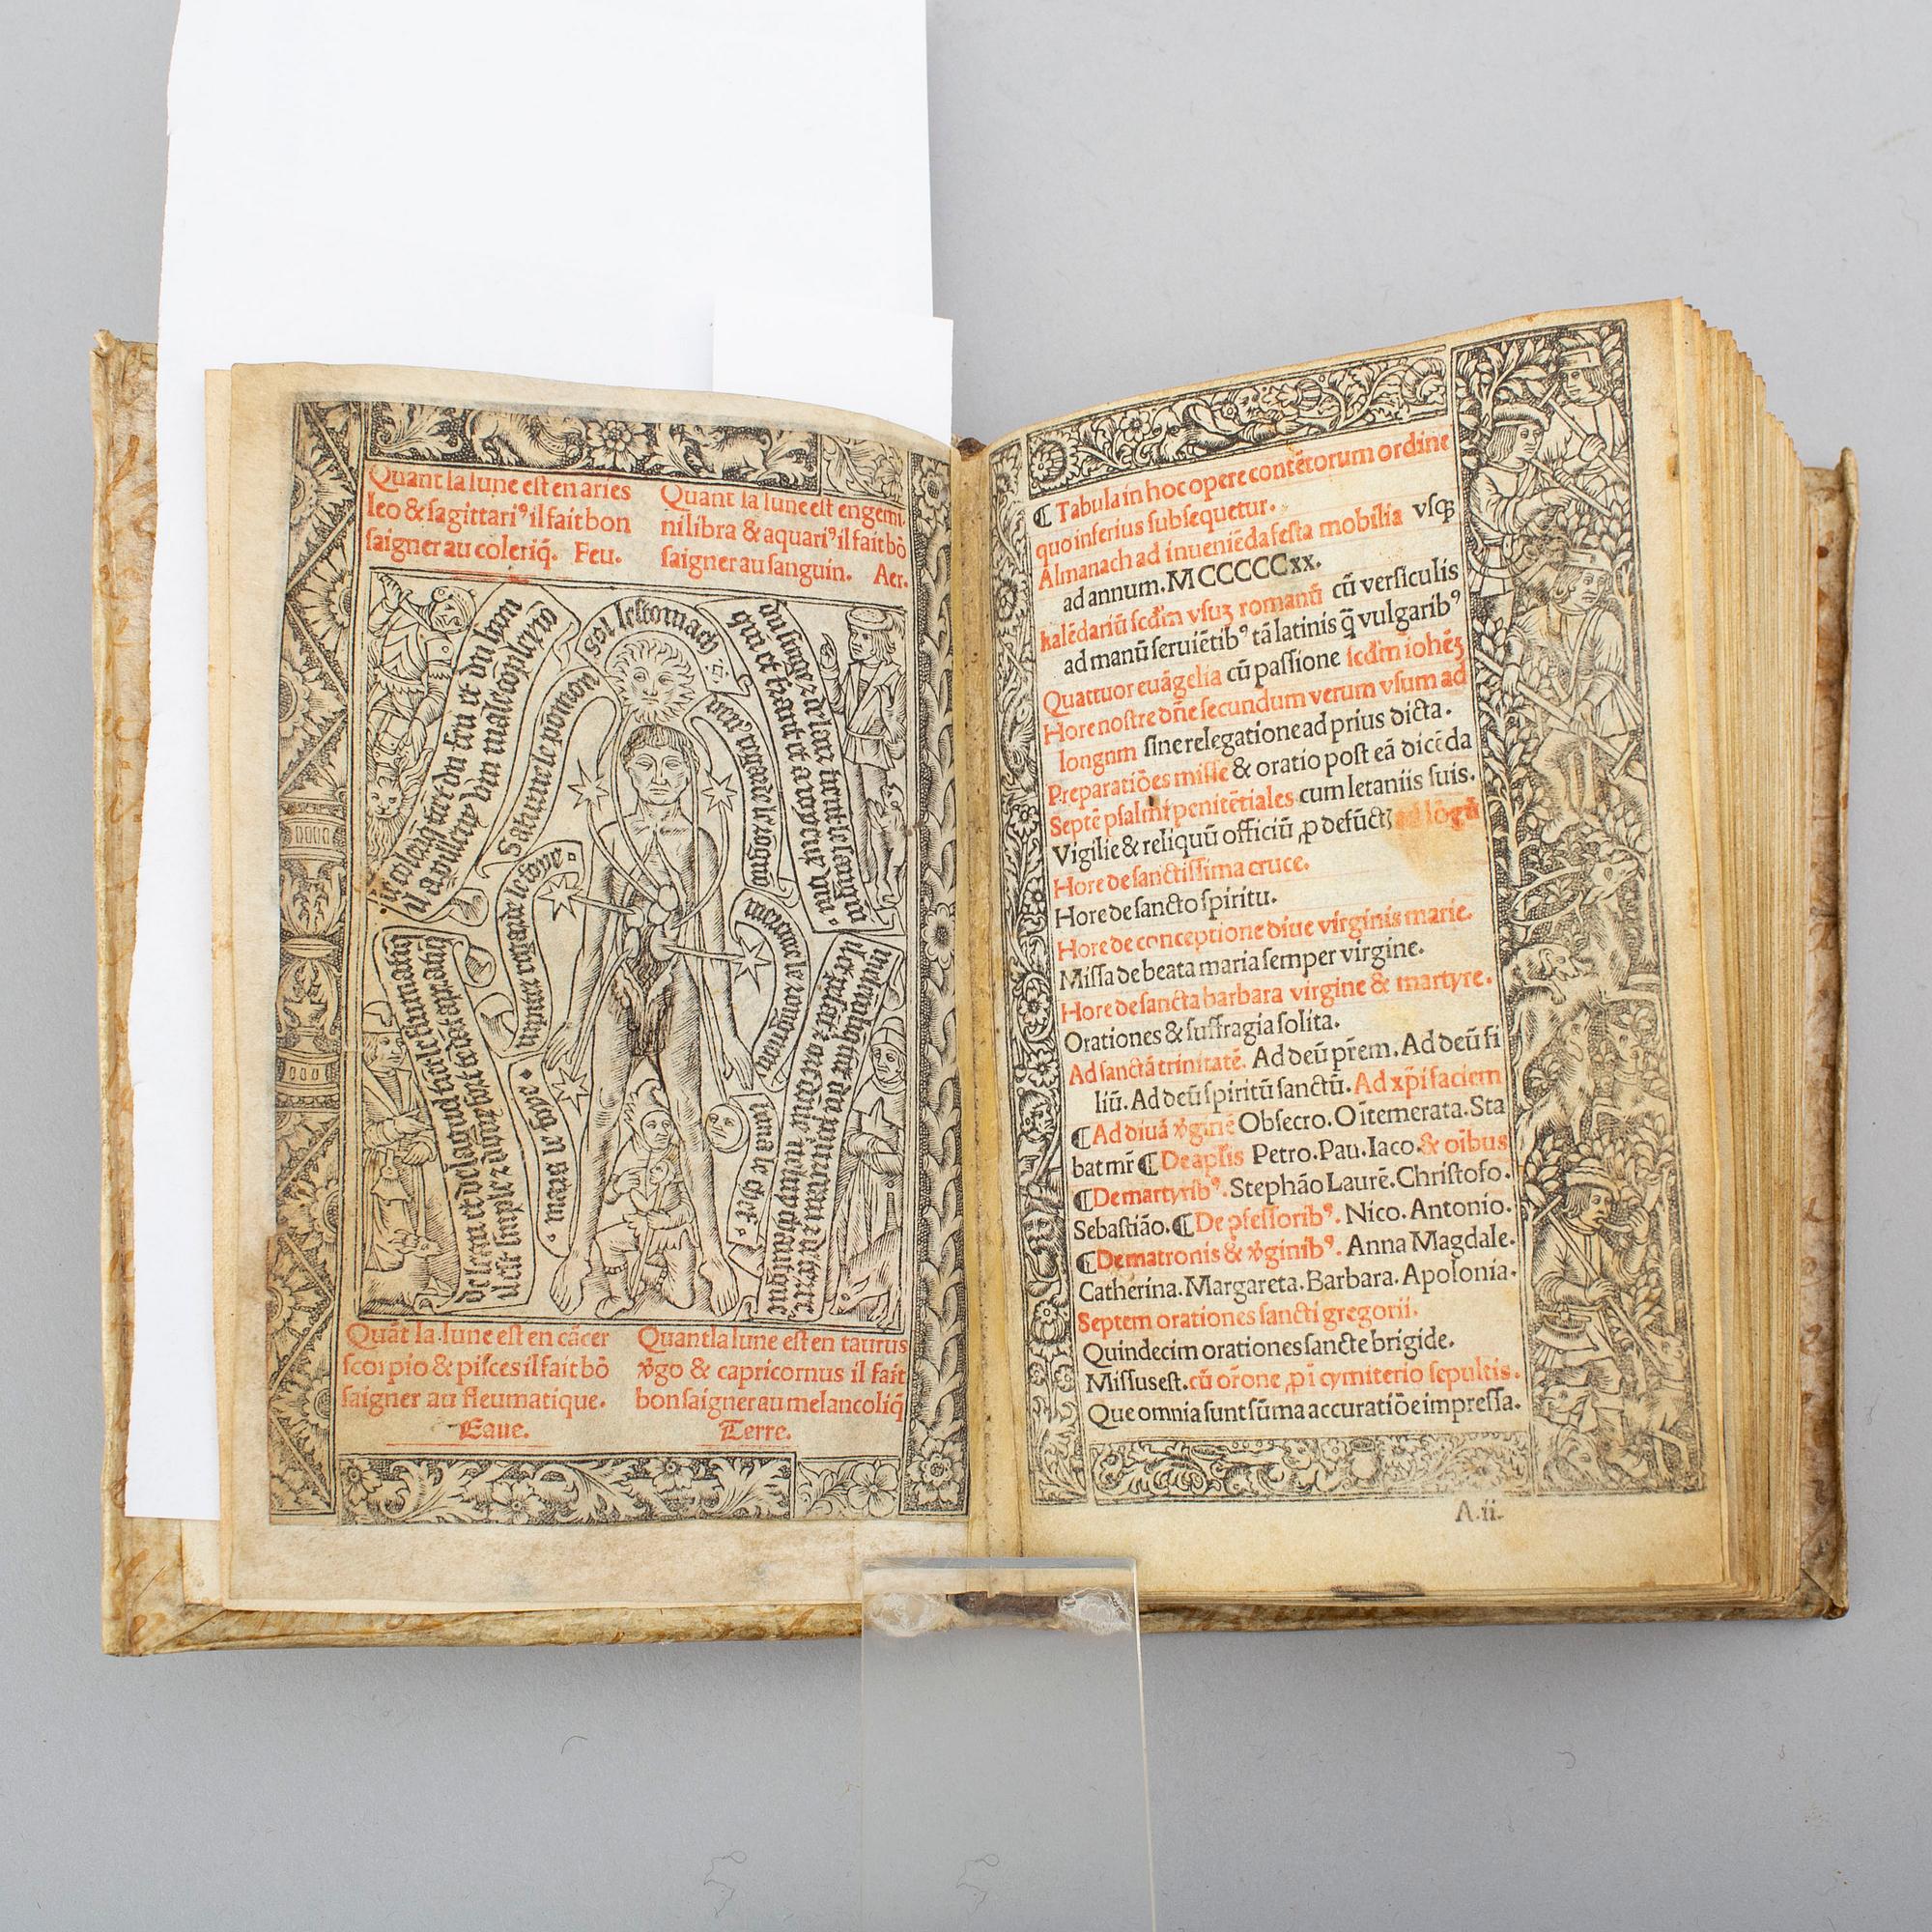 Quant la lune est en aries
leo & sagittariꝰ il fait bon
saigner au coleriq̃. Feu.
Quant la lune est en gemi.
ni libra & aquariꝰ il fait bõ
saigner au sanguin. Aer.
sol lestomach
Saturne le poumon
iupiter regarde le foye
mars le foye
venꝰ regarde les rognõs
mercure les rongnons
luna le chef
Quãt la lune est en cãcer
scorpio & pisces il fait bõ
saigner au fleumatique.
Eaue.
Quant la lune est en taurus
v̾go & capricornus il fait
bon saigner au melancoliq̃
Terre.
¶ Tabula in hoc opere contẽtorum ordine
quo inferius subsequetur.
Almanach ad inueniẽda festa mobilia vsq̃
ad annum. M CCCCC xx.
kalẽdariũ scd̃m vsuȝ romanũ cũ versiculis
ad manũ seruiẽtibꝰ tã latinis q̃ vulgaribꝰ
Quattuor euãgelia cũ passione scd̃m iohẽȝ
Hore nostre dñe secundum verum vsum ad
longum sine relegatione ad prius dicta.
Preparatiões misse & oratio post eã dicẽda
Septẽ psalmi penitẽtiales cum letaniis suis.
Vigilie & reliquũ officiũ ꝓ defũctꝭ ad lõgũ
Hore de sanctissima cruce.
Hore de sancto spiritu.
Hore de conceptione diue virginis marie.
Missa de beata maria semper virgine.
Hore de sancta barbara virgine & martyre.
Orationes & suffragia solita.
Ad sanctã trinitatẽ. Ad deũ pr̃em. Ad deũ fi
liũ. Ad deũ spiritũ sanctũ. Ad xp̃i faciem
¶ Ad diuã v̾ginẽ Obsecro. O ĩtemerata. Sta
bat mr̃ ¶ De apl̃is Petro. Pau. Iaco. & oĩbus
¶ De martyribꝰ. Stephão Laurẽ. Christofo.
Sebastião. ¶ De ꝯfessoribꝰ. Nico. Antonio.
¶ De matronis & v̾ginibꝰ. Anna Magdale.
Catherina. Margareta. Barbara. Apolonia.
Septem orationes sancti gregorii.
Quindecim orationes sancte brigide.
Missus est. cũ or̃one ꝓ ĩ cymiterio sepultis.
Que omnia sunt sũma accuratiõe impressa.
A.ii.